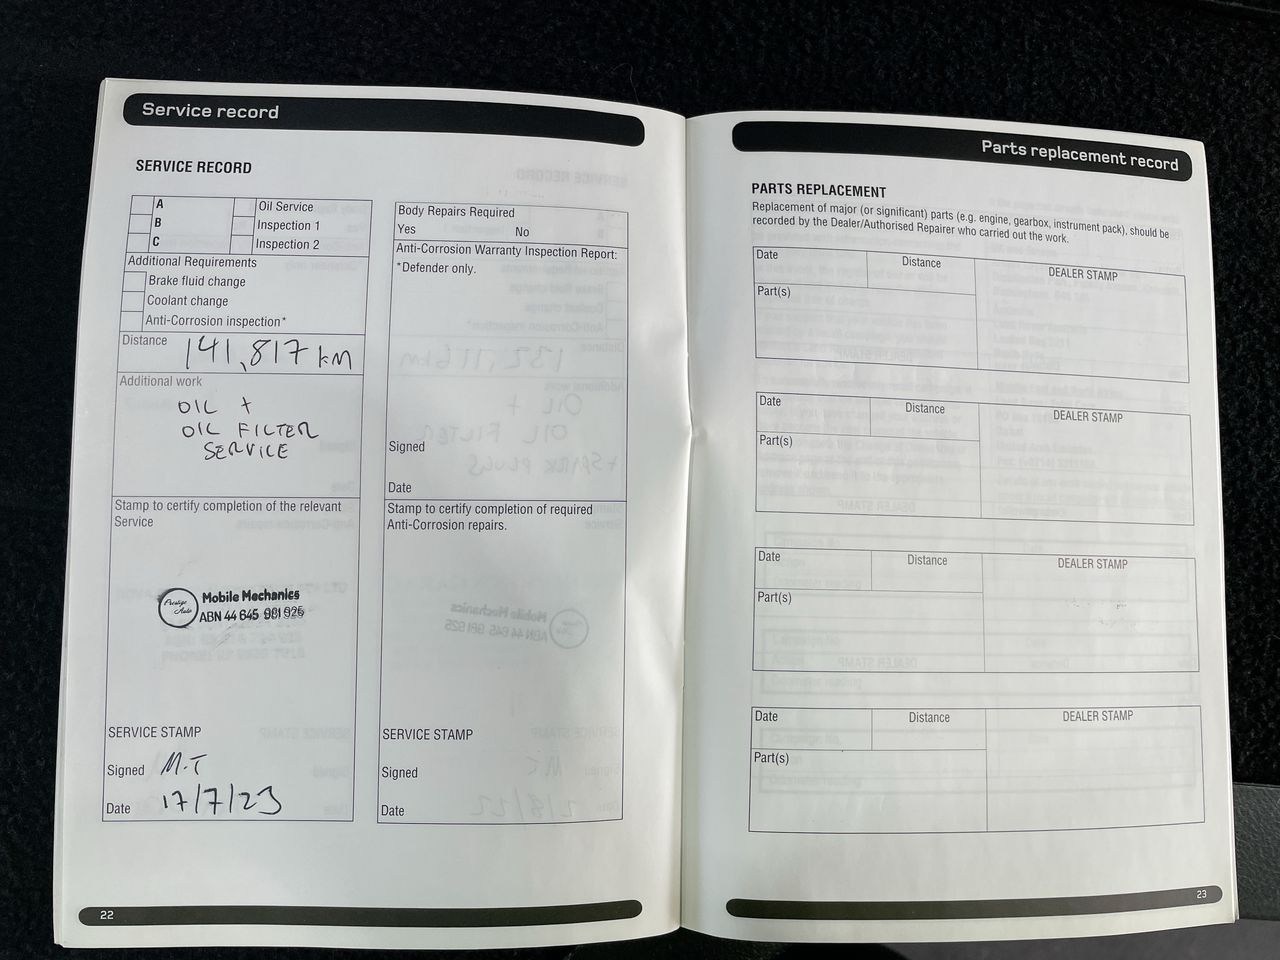 Service record
SERVICE RECORD
A
Oil Service
B
Inspection 1
C
Inspection 2
Additional Requirements
Brake fluid change
Coolant change
Anti-Corrosion inspection*
Distance
141,817 km
Additional work
OIL +
OIL FILTER
SERVICE
Stamp to certify completion of the relevant
Service
Prestige
Auto
Mobile Mechanics
ABN 44 645 981 925
SERVICE STAMP
Signed M.T
Date 17/7/23
22
Body Repairs Required
Yes No
Anti-Corrosion Warranty Inspection Report:
*Defender only.
Signed
Date
Stamp to certify completion of required
Anti-Corrosion repairs.
SERVICE STAMP
Signed
Date
Parts replacement record
PARTS REPLACEMENT
Replacement of major (or significant) parts (e.g. engine, gearbox, instrument pack), should be
recorded by the Dealer/Authorised Repairer who carried out the work.
Date Distance DEALER STAMP
Part(s)
Date Distance DEALER STAMP
Part(s)
Date Distance DEALER STAMP
Part(s)
Date Distance DEALER STAMP
Part(s)
23